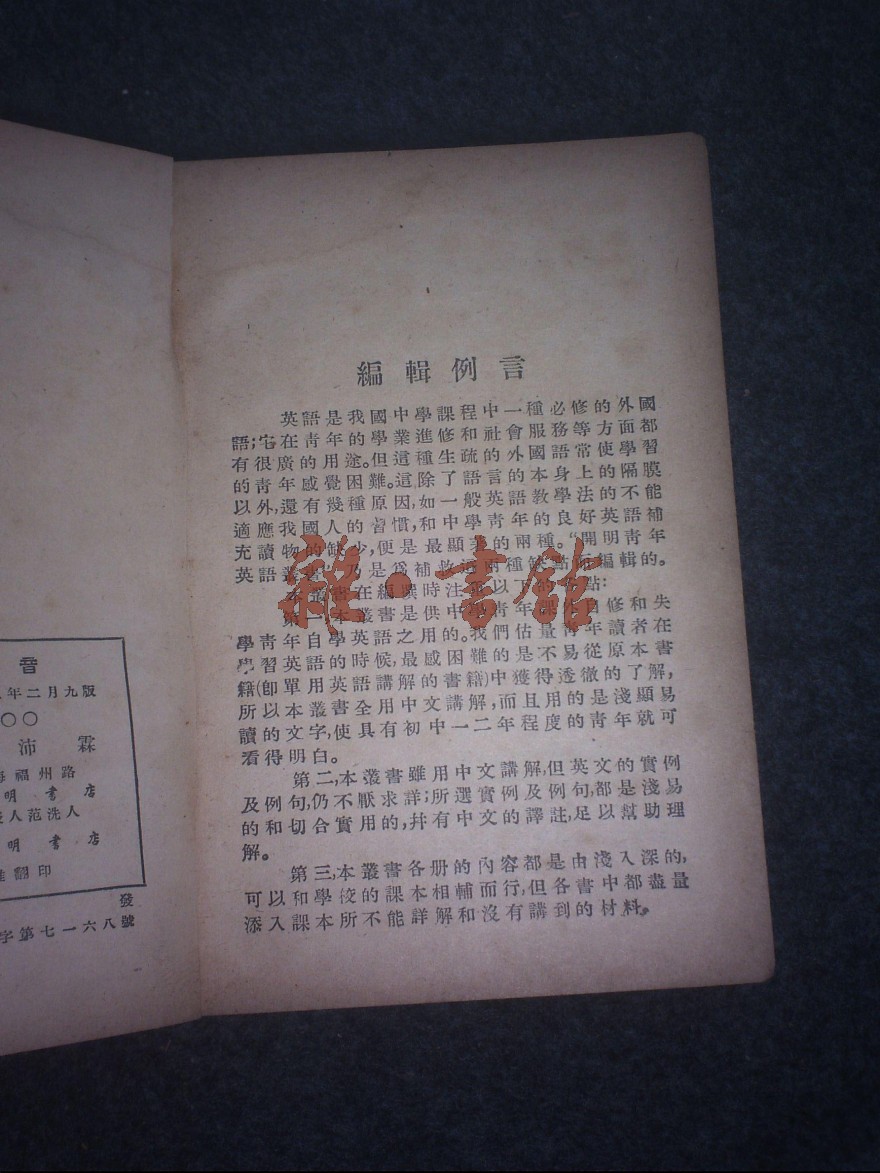 音
年二月九版
〇〇
沛霖
海福州路
明書店
人范洗人
明書店
翻印
發
字第七一六八號
編輯例言
英語是我國中學課程中一種必修的外國
語;它在青年的學業進修和社會服務等方面都
有很廣的用途。但這種生疏的外國語常使學習
的青年感覺困難。這除了語言的本身上的隔膜
以外,還有幾種原因,如一般英語教學法的不能
適應我國人的習慣,和中學青年的良好英語補
充讀物的缺少,便是最顯著的兩種。“開明青年
英語叢書”乃是爲補救這兩種缺點而編輯的。
本叢書在編撰時注重以下的各點:
第一,本叢書是供中學青年課外自修和失
學青年自學英語之用的。我們估量青年讀者在
學習英語的時候,最感困難的是不易從原本書
籍(卽單用英語講解的書籍)中獲得透徹的了解,
所以本叢書全用中文講解,而且用的是淺顯易
讀的文字,使具有初中一二年程度的青年就可
看得明白。
第二,本叢書雖用中文講解,但英文的實例
及例句,仍不厭求詳;所選實例及例句,都是淺易
的和切合實用的,幷有中文的譯註,足以幫助理
解。
第三,本叢書各册的內容都是由淺入深的,
可以和學校的課本相輔而行,但各書中都盡量
添入課本所不能詳解和沒有講到的材料。
雜·書館